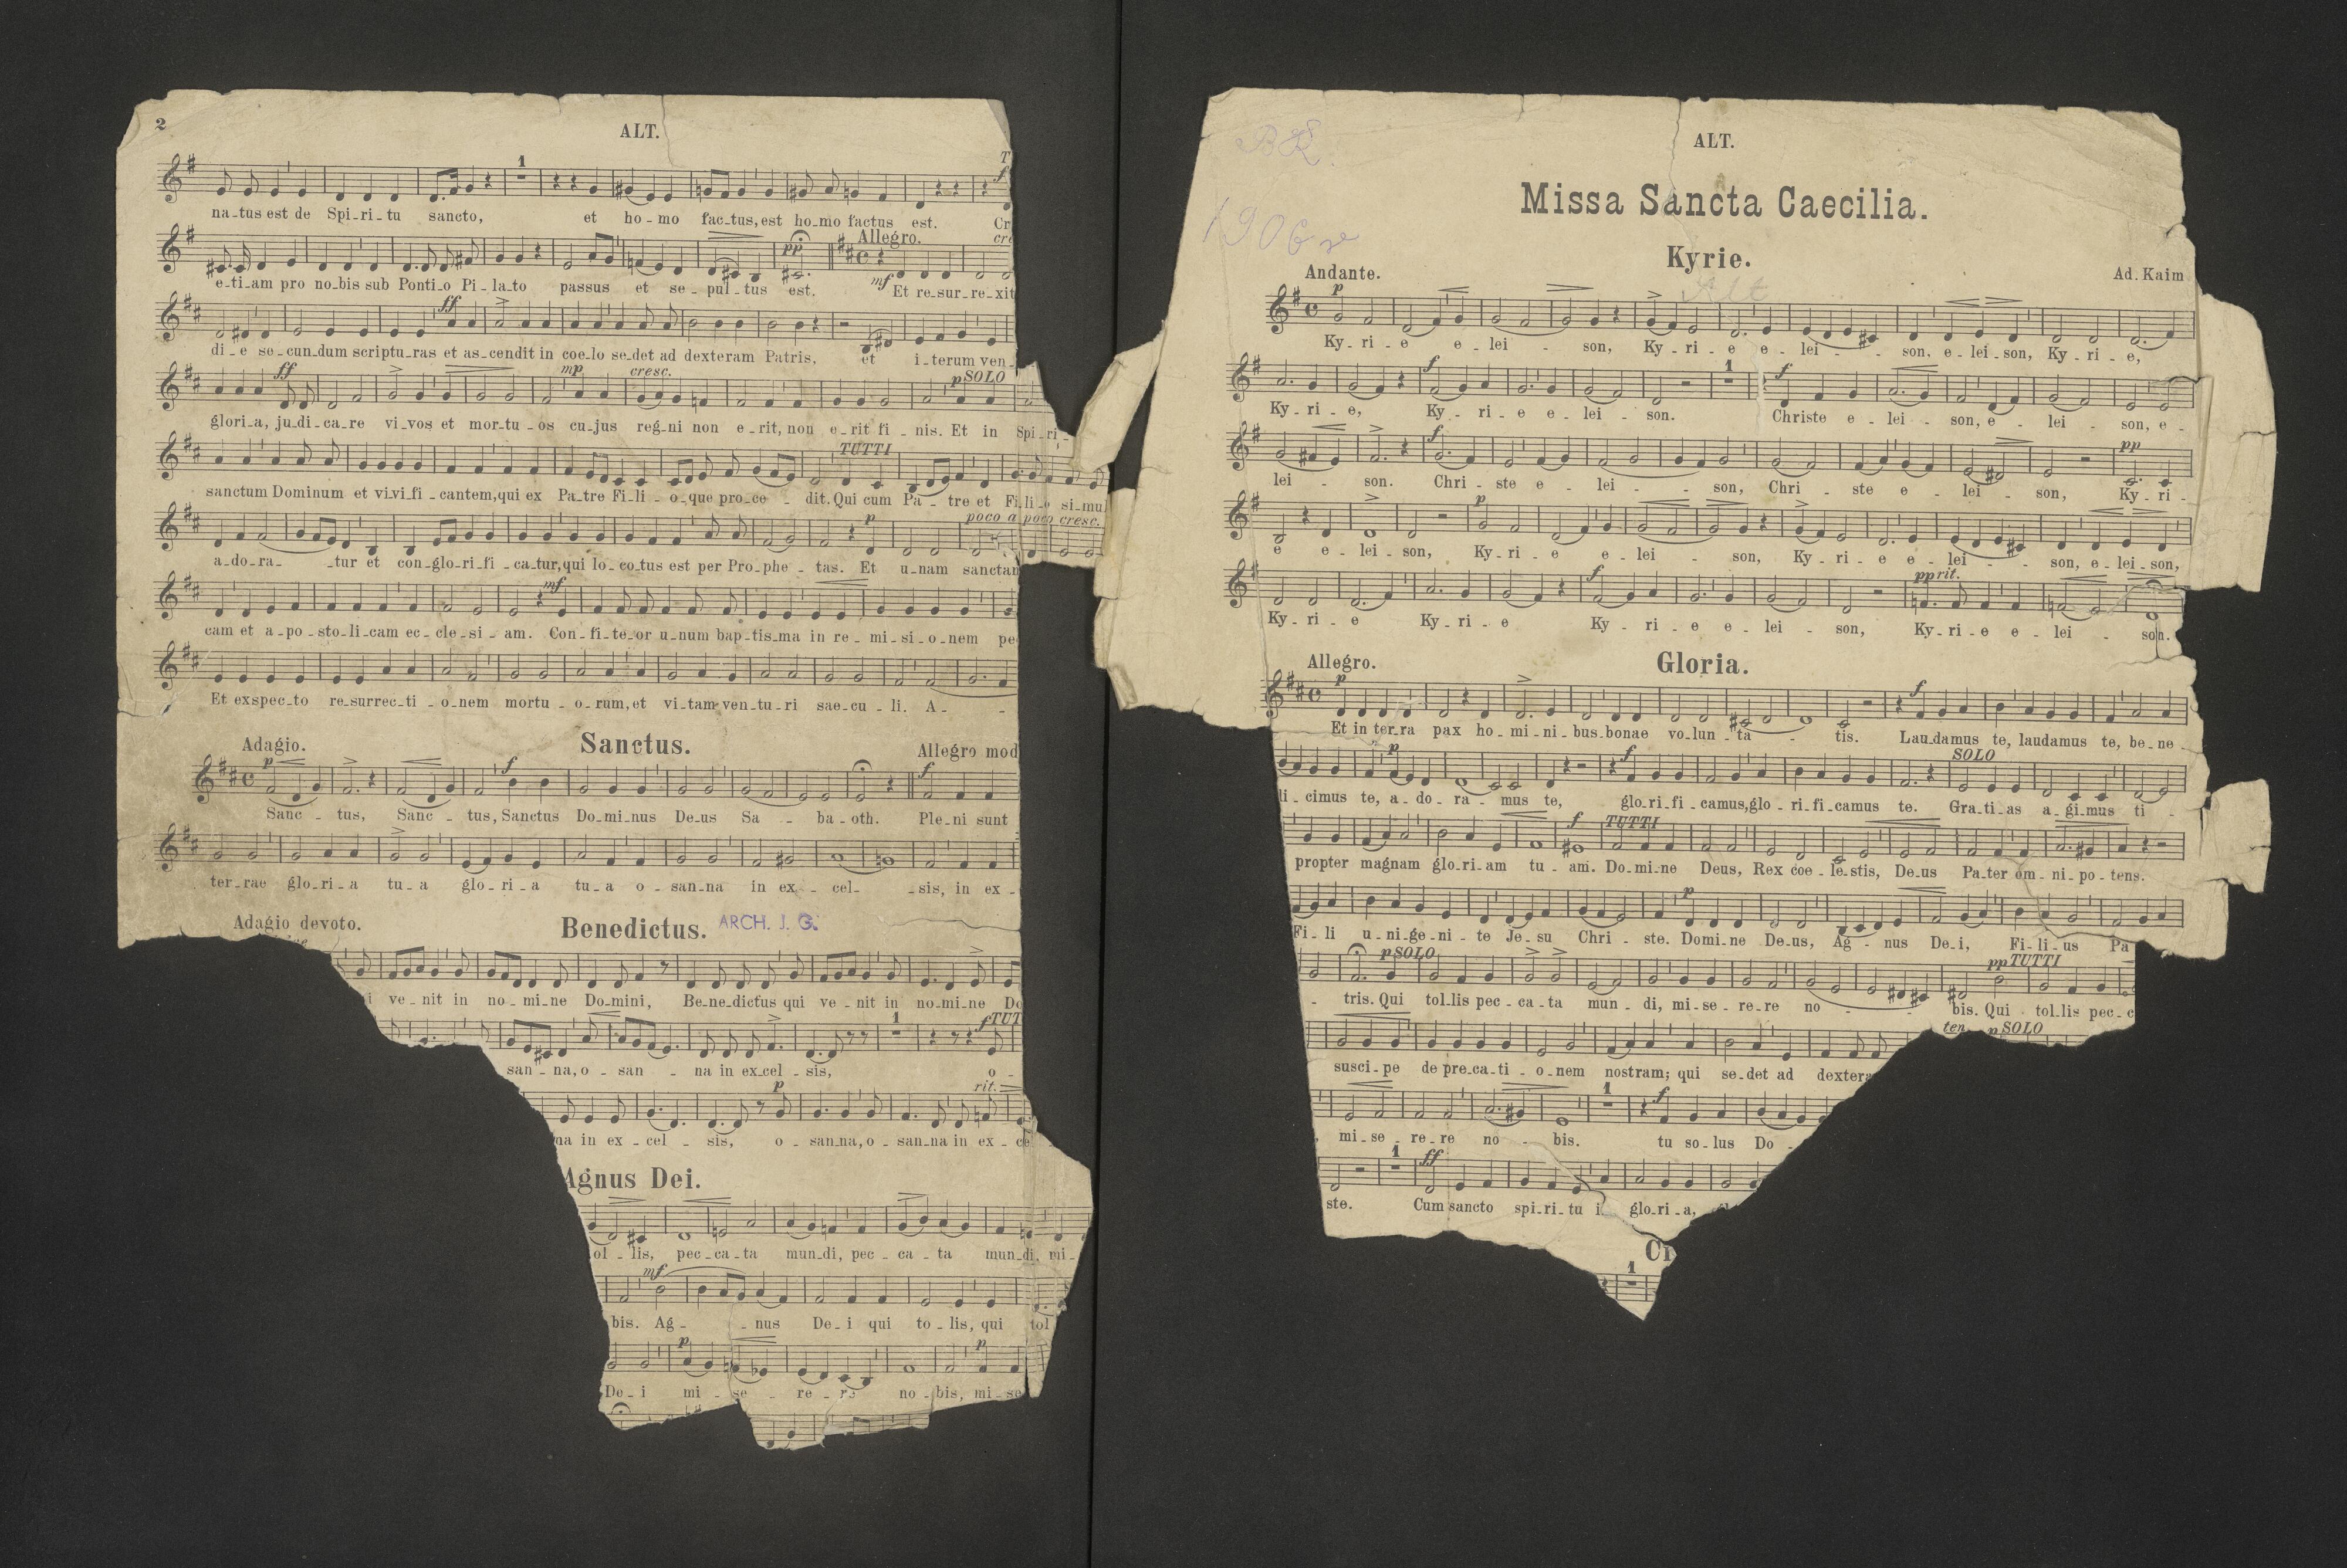 2
ALT.
1
na-tus est de Spi-ri-tu sancto, et ho-mo fac-tus, est ho-mo factus est. Cr
Allegro. cre
pp
mf
e-ti-am pro no-bis sub Ponti-o Pi-la-to passus et se-pul-tus est. Et re-sur-re-xit
ff
di-e se-cun-dum scriptu-ras et as-cendit in coe-lo se-det ad dexteram Patris, et i-terum ven-
ff mp cresc. p SOLO
glori-a, ju-di-ca-re vi-vos et mor-tu-os cu-jus reg-ni non e-rit, non e-rit fi-nis. Et in Spi-ri-
TUTTI
sanctum Dominum et vi-vi-fi-cantem, qui ex Pa-tre Fi-li-o-que pro-ce-dit. Qui cum Pa-tre et Fi-li-o si-mul
p poco a poco cresc.
a-do-ra-tur et con-glo-ri-fi-ca-tur, qui lo-co-tus est per Pro-phe-tas. Et u-nam sanctam
mf
cam et a-po-sto-li-cam ec-cle-si-am. Con-fi-te-or u-num bap-tis-ma in re-mi-si-o-nem pe
Et exspec-to re-surrec-ti-o-nem mortu-o-rum, et vi-tam ven-tu-ri sae-cu-li. A-
Adagio. Sanctus. Allegro mod
p f f
Sanc-tus, Sanc-tus, Sanctus Do-mi-nus De-us Sa-ba-oth. Ple-ni sunt
ter-rae glo-ri-a tu-a glo-ri-a tu-a o-san-na in ex-cel-sis, in ex-
Adagio devoto. Benedictus. ARCH. J. G.
i ve-nit in no-mi-ne Do-mini, Be-ne-dictus qui ve-nit in no-mi-ne Do
1 f TUT
san-na, o-san-na in ex-cel-sis, o-
p rit.
na in ex-cel-sis, o-san-na, o-san-na in ex-ce
Agnus Dei.
ol-lis, pec-ca-ta mun-di, pec-ca-ta mun-di, mi-
mf
bis. Ag-nus De-i qui to-lis, qui tol
p p
De-i mi-se-re-re no-bis, mi-se
BK.
1906
ALT.
Missa Sancta Caecilia.
Kyrie.
Andante. Ad. Kaim
Alt
p
Ky-ri-e e-lei-son, Ky-ri-e e-lei-son. e-lei-son, Ky-ri-e,
f 1 f
Ky-ri-e, Ky-ri-e e-lei-son. Christe e-lei-son, e-lei-son, e-
f pp
lei-son. Chri-ste e-lei-son, Chri-ste e-lei-son, Ky-ri-
p
e e-lei-son, Ky-ri-e e-lei-son, Ky-ri-e e-lei-son, e-lei-son,
f pp rit.
Ky-ri-e Ky-ri-e Ky-ri-e e-lei-son, Ky-ri-e e-lei-son.
Allegro. Gloria.
p f
Et in ter-ra pax ho-mi-ni-bus bonae vo-lun-ta-tis. Lau-damus te, laudamus te, be-ne-
p f SOLO
di-cimus te, a-do-ra-mus te, glo-ri-fi-camus, glo-ri-fi-camus te. Gra-ti-as a-gi-mus ti-
f TUTTI
propter magnam glo-ri-am tu-am. Do-mi-ne Deus, Rex coe-le-stis, De-us Pa-ter om-ni-po-tens.
p
Fi-li u-ni-ge-ni-te Je-su Chri-ste. Domi-ne De-us, Ag-nus De-i, Fi-li-us Pa
p SOLO pp TUTTI
-tris. Qui tol-lis pec-ca-ta mun-di, mi-se-re-re no-bis. Qui tol-lis pec-c
ten. p SOLO
susci-pe de-pre-ca-ti-o-nem nostram; qui se-det ad dextera
1 f
mi-se-re-re no-bis. tu so-lus Do-
1 ff
ste. Cum sancto spi-ri-tu i glo-ri-a,
Cr
1